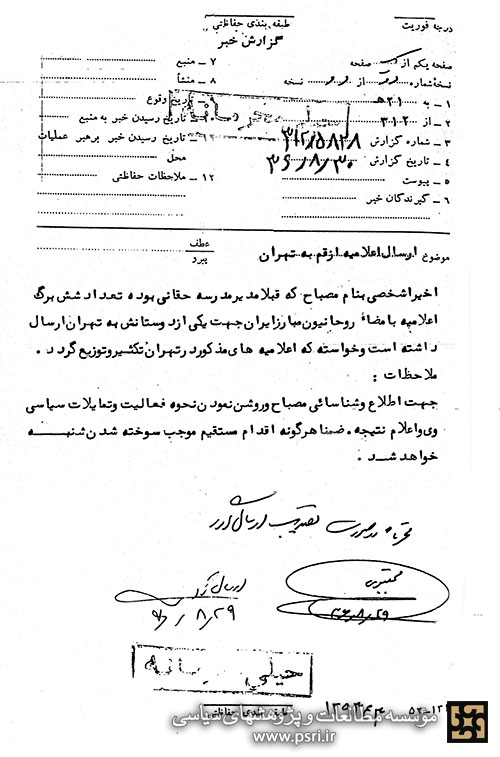 درجه فوریت
طبقه بندی حفاظتی
گزارش خبر
صفحه یکم از یک صفحه
نسخه شماره دو از دو نسخه
۱ ـ به ۲۱ هـ
۲ ـ از ۳۱۲
۳ ـ شماره گزارش ۳۱۲/۵۸۲۸
۴ ـ تاریخ گزارش ۳۶/۸/۳۰
۵ ـ پیوست
۶ ـ گیرندگان خبر
۷ ـ منبع
۸ ـ منشأ
تاریخ وقوع
تاریخ رسیدن خبر به منبع
تاریخ رسیدن خبر برهبر عملیات
محل
۱۲ ـ ملاحظات حفاظتی
خیلی محرمانه
موضوع ارسال اعلامیه از قم به تهران
عطف
پیرو
اخیرا شخصی بنام مصباح که قبلا مدیر مدرسه حقانی بوده تعداد شش برگ
اعلامیه با مضاٴ روحانیون مبارز ایران جهت یکی از دوستانش به تهران ارسال
داشته است و خواسته که اعلامیه های مذکور در تهران تکثیر و توزیع گردد .
ملاحظات :
جهت اطلاع و شناسائی مصباح و روشن نمودن نحوه فعالیت و تمایلات سیاسی
وی و اعلام نتیجه . ضمنا هرگونه اقدام مستقیم موجب سوخته شدن شنبه
خواهد شد .
ارسال گردد
۳۶/۸/۲۹
۳۶/۸/۲۹
خیلی محرمانه
طبقه بندی حفاظتی
۱۲۹۴۴۴
موسسه مطالعات و پژوهشهای سیاسی
www.psri.ir